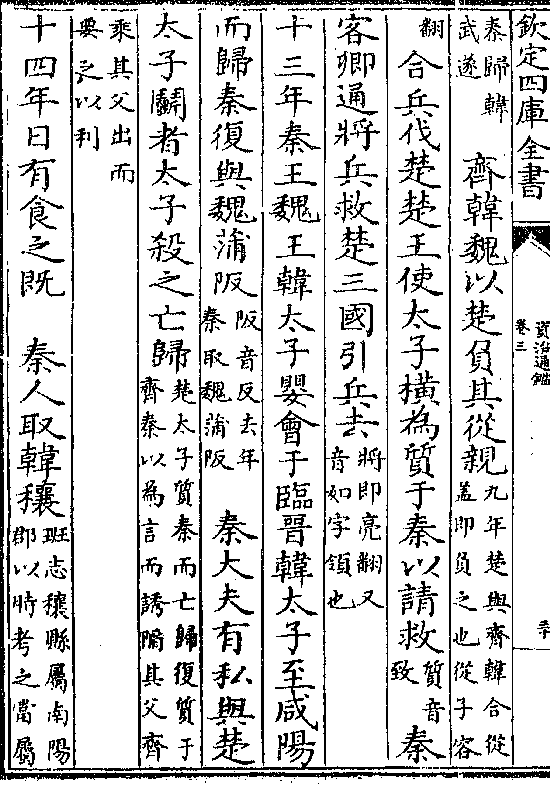 欽定四庫全書
資治通鑑
卷三
三十
秦歸韓
武遂
齊韓魏以楚負其從親
九年楚與齊韓合從
蓋即負之也從子容
翻
合兵伐楚楚王使太子橫為質于秦以請救
質音
致
秦
客卿通將兵救楚三國引兵去
將即亮翻又
音如字領也
十三年秦王魏王韓太子嬰會于臨晉韓太子至咸陽
而歸秦復與魏蒲阪
阪音反去年
秦取魏蒲阪
秦大夫有私與楚
太子鬭者太子殺之亡歸
楚太子質秦而亡歸復質于
齊秦以為言而誘脅其父齊
乘其父出而
要之以利
十四年日有食之既
秦人取韓穰
班志穰縣屬南陽
郡以時考之當屬